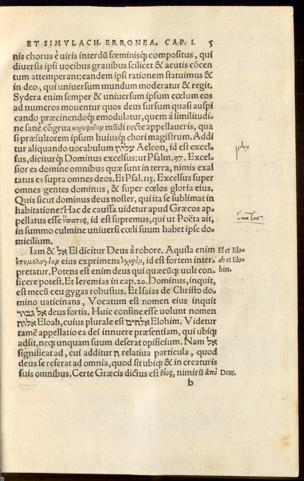 ET SIMVLACH. ERRONEA. CAP. I. 5
nis chorus è uiris interdū fœminisq́; compositus, qui
diuersis ipse uocibus grauibus scilicet & acutis côcen
tum attemperant: eandem ipsi rationem statuimus &
in deo, qui uniuersum mundum moderatur & regit.
Sydera enim semper & uniuersum ipsum cœlum eos
ad numeros mouentur quos deus sursum quasi auspi
cando præcinendoq́; emodulatur, quem à similitudi
ne sanè côgrua κορυφαῖον mūdi recte appellaueris, qua
si præsultorem ipsum huiusq́; chori magistrum. Addi
tur aliquando uocabulum עליון Aeleon, id est excel-
sus, diciturq́; Dominus excelsus: ut Psalm. 97. Excel-
sior es domine omnibus quæ sunt in terra, nimis exal
tatus es supra omnes deos. Et Psal. 113. Excelsus super
omnes gentes dominus, & super cœlos gloria eius,
Quis sicut dominus deus noster, qui ita se sublimat in
habitatione? Hac de causa uidetur apud Græcos ap-
pellatus esse ὕπατος, id est supremus, qui ut Poëta ait,
in summo culmine uniuersi cœli suum habet ipse do-
micilium.
Iam & אל El dicitur Deus à robore. Aquila enim
ἐτυμολογίαν eius exprimens ἰσχυρὸν, id est fortem inter-
pretatur. Potens est enim deus qui quæcūq; uult con-
ficere potest. Et Ieremias in cap. 20. Dominus, inquit,
est mecū ceu gygas robustus. Et Isaias de Christo do-
mino uaticinans, Vocatum est nomen eius inquit
אל גבור deus fortis. Huic confine esse uolunt nomen
אלוה Eloah, cuius plurale est אלהים Elohim. Videtur
tamē appellatio ea dei innuere præsentiam, qui ubiq́;
adsit, neq́; unquam suum deserat opificium. Nam אל
significat ad, cui additur ה relatiua particula, quod
deus se referat ad omnia, quod sit ubiq́; & in creaturis
suis omnibus. Certe Græcis dictus est θεὸς, nimirū ἀπὸ
b
עליון
ὕπατος
El et Elo-
ah et Elo-
him.
Deus.